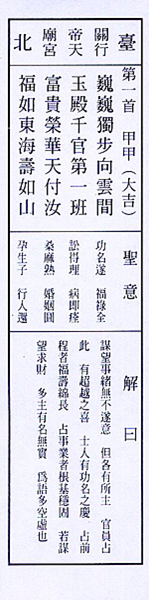 臺北
行天宮
關帝廟
第一首 甲甲(大吉)
巍巍獨步向雲間
玉殿千官第一班
富貴榮華天付汝
福如東海壽如山
聖意
功名遂 福祿全
訟得理 病即痊
桑麻熟 婚姻圓
孕生子 行人還
解曰
謀望事緒無不遂意 但各有所主 官員占
此 有超越之喜 士人有功名之慶 占前
程者福壽綿長 占事業者根基穩固 若謀
望求財 多主有名無實 為語多空虛也